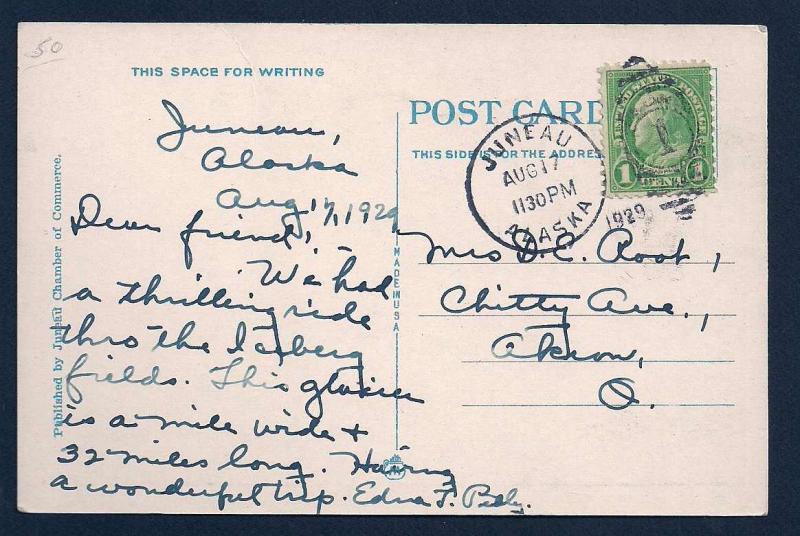 50
THIS SPACE FOR WRITING
Juneau,
Alaska
Aug 17, 1929
Dear friend,
We had
a thrilling ride
thro the Iceberg
fields. This glacier
is a mile wide +
32 miles long. Having
a wonderful trip. Edna F.
Published by Juneau Chamber of Commerce.
MADE IN USA
POST CARD
THIS SIDE IS FOR THE ADDRESS
JUNEAU
AUG 17
1130 PM
ALASKA
1929
1 CENT 1
Mrs D. C. Root,
Chitty Ave.,
Akron,
O.